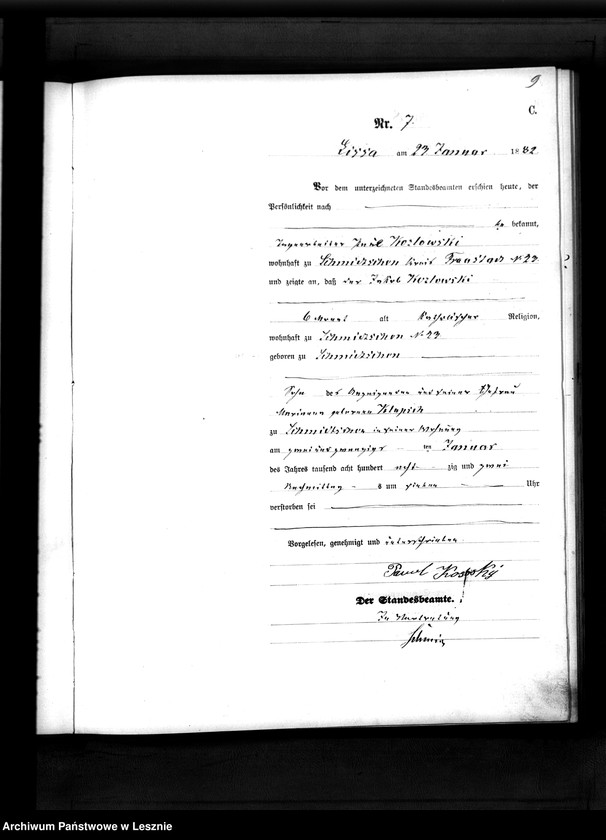 9
C.
Nr. 7.
Lissa am 23 Januar 1882
Vor dem unterzeichneten Standesbeamten erschien heute, der
Persönlichkeit nach
bekannt,
Paul Kozlowski
wohnhaft zu Schmidtschen Kreis Fraustadt No 23
und zeigte an, daß der Jakob Kozlowski
6 Monat alt katholischer Religion,
wohnhaft zu Schmidtschen No 23
geboren zu Schmidtschen
Sohn des Anzeigenden und seiner Ehefrau
Marianna geborenen
zu Schmidtschen in seiner Wohnung
am zweiundzwanzigsten Januar
des Jahres tausend acht hundert achtzig und zwei
Nachmittags um sieben Uhr
verstorben sei
Vorgelesen, genehmigt und unterschrieben
Der Standesbeamte.
In Vertretung
Archiwum Państwowe w Lesznie